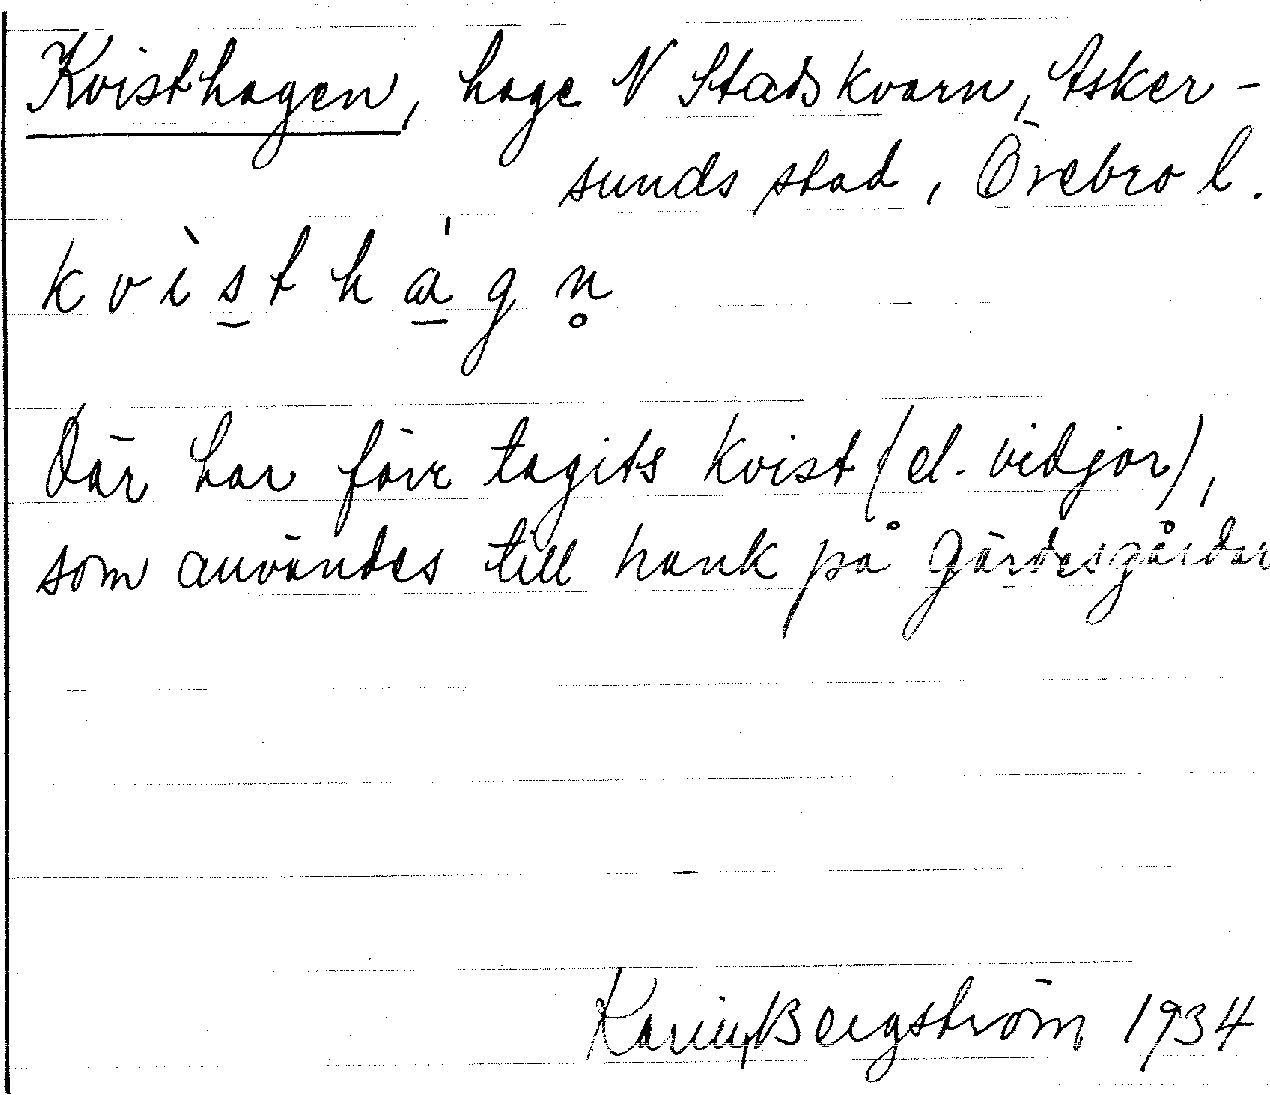 Kvisthagen, hage N Stadskvarn, Asker-
sunds stad, Örebro l.
kvìsthágn̥
Där har förr tagits kvist (el. vidjor),
som användes till hank på gärdesgårdar
Karin Bergström 1934